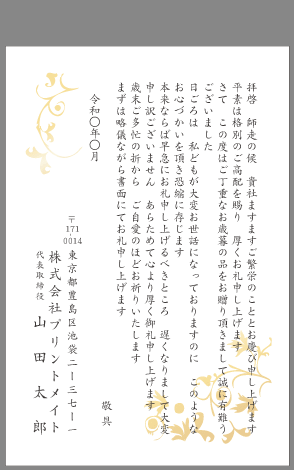 拝啓　師走の候　貴社ますますご繁栄のこととお慶び申し上げます
平素は格別のご高配を賜り　厚くお礼申し上げます
さて　この度はご丁重なお歳暮の品をお贈り頂きまして誠に有難う
ございました
日ごろは　私どもが大変お世話になっておりますのに　このような
お心づかいを頂き恐縮に存じます
本来ならば早急にお礼申し上げるべきところ　遅くなりまして大変
申し訳ございません　あらためて心より厚く御礼申し上げます
歳末ご多忙の折から　ご自愛のほどお祈りいたします
まずは略儀ながら書面にてお礼申し上げます
敬具
令和〇年〇月
〒171-0014
東京都豊島区池袋二ー三七ー一
株式会社プリントメイト
代表取締役　山田太郎